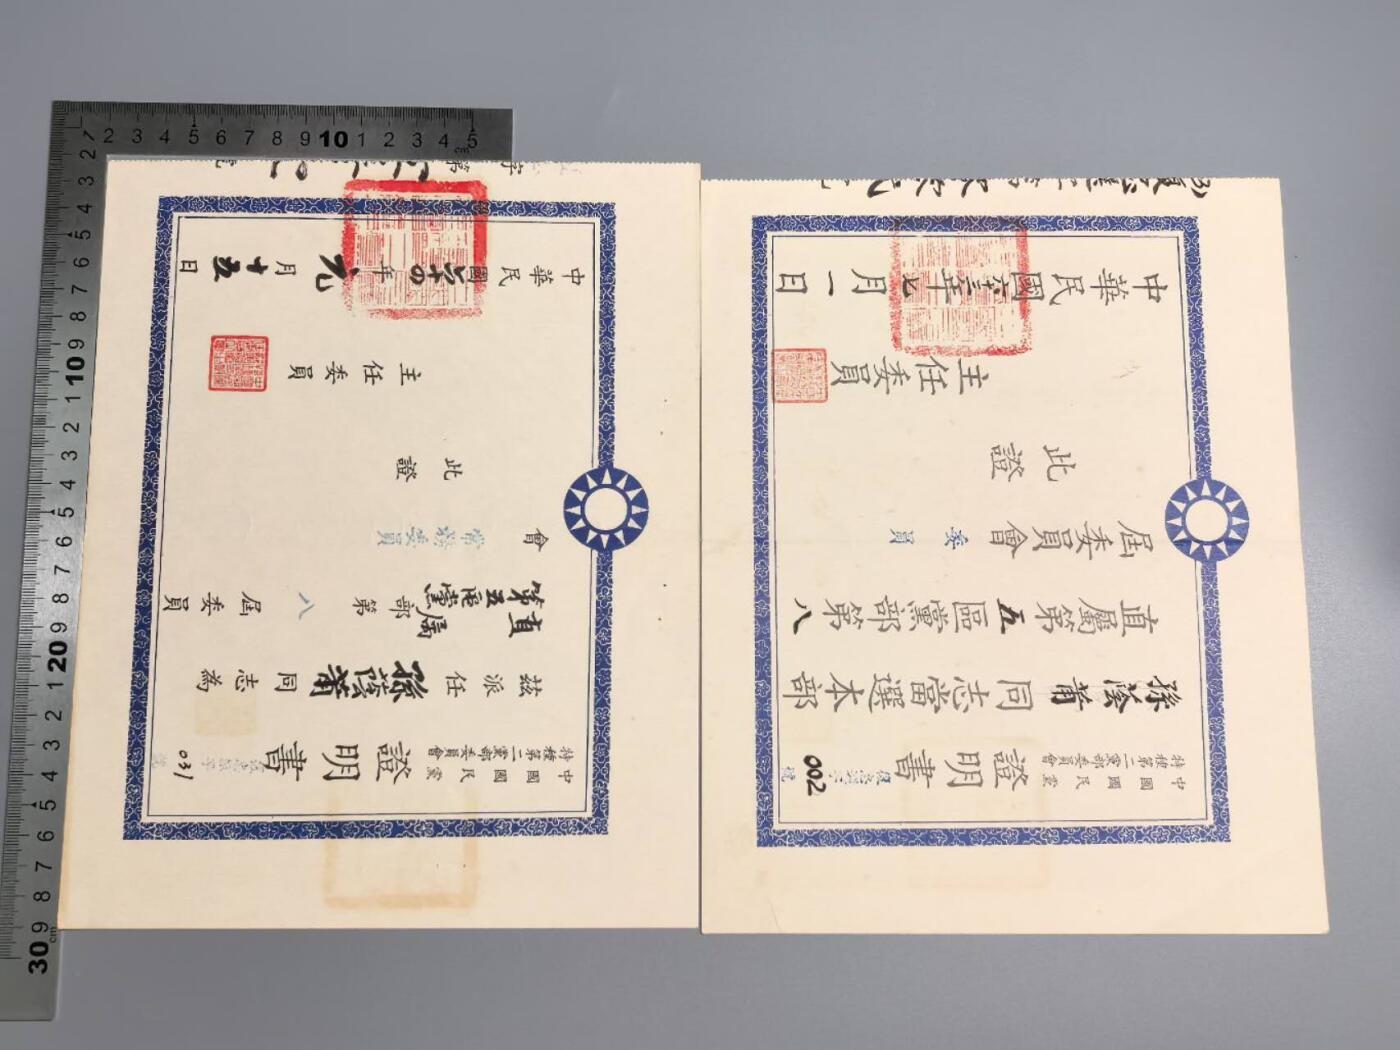 中國國民黨
特種第二黨部委員會
證明書
031
茲派任孫蔭莆同志為
直屬
第五區黨部第八屆委員
會常務委員
此證
主任委員
中華民國六十四年元月十五日
中國國民黨
特種第二黨部委員會
證明書
002
孫蔭莆同志當選本部
直屬第五區黨部第八
屆委員會委員
此證
主任委員
中華民國六十三年七月一日
2 3 4 5 6 7 8 9 10 1 2 3 4 5
cm
2 3 4 5 6 7 8 9 10 1 2 3 4 5 6 7 8 9 20 1 2 3 4 5 6 7 8 9 30
cm